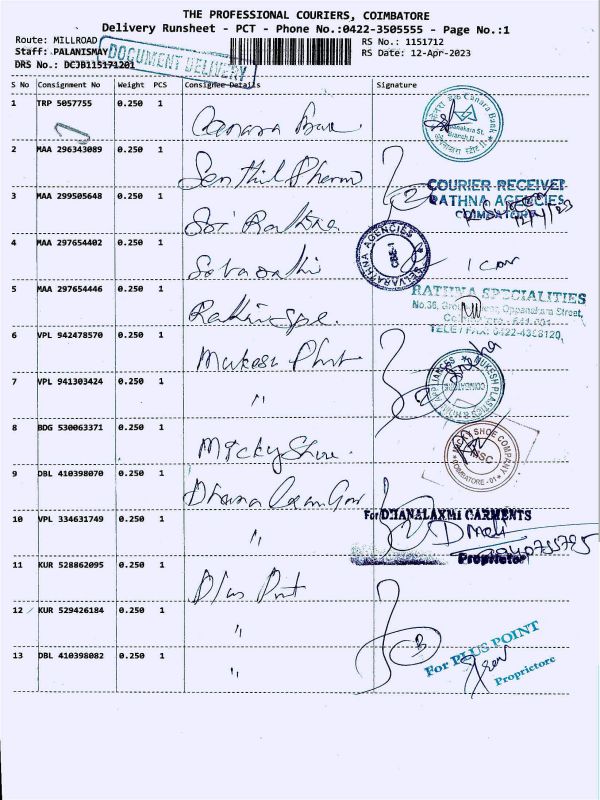 THE PROFESSIONAL COURIERS, COIMBATORE
Delivery Runsheet - PCT - Phone No.:0422-3505555 - Page No.:1
Route: MILLROAD
RS No.: 1151712
Staff: PALANISMAY
RS Date: 12-Apr-2023
DOCUMENT DELIVERY
DRS No.: DCJB115171201
S No Consignment No Weight PCS Consignee Details Signature
1 TRP 5057755 0.250 1
Canara Bank
2 MAA 296343089 0.250 1 Senthil Pharma
COURIER RECEIVED
RATHNA AGENCIES
COIMBATORE
3 MAA 299505648 0.250 1 Sri Rathna
4 MAA 297654402 0.250 1
SELVARATHNA AGENCIES
CBE-1
5 MAA 297654446 0.250 1
RATHNA SPECIALITIES
Oppanakara Street,
TELE / FAX: 0422-4368120,
6 VPL 942478570 0.250 1 Mukesh
MUKESH PLASTICS & APPLIANCES
COIMBATORE
7 VPL 941303424 0.250 1 "
8 BDG 530063371 0.250 1 Micky Shoe
MICKY SHOE COMPANY
MSC
COIMBATORE - 01
9 DBL 410398070 0.250 1 Dhana
10 VPL 334631749 0.250 1 "
For DHANALAXMI GARMENTS
Proprietor
11 KUR 528862095 0.250 1
12 KUR 529426184 0.250 1 "
13 DBL 410398082 0.250 1 "
For PLUS POINT
Proprietore